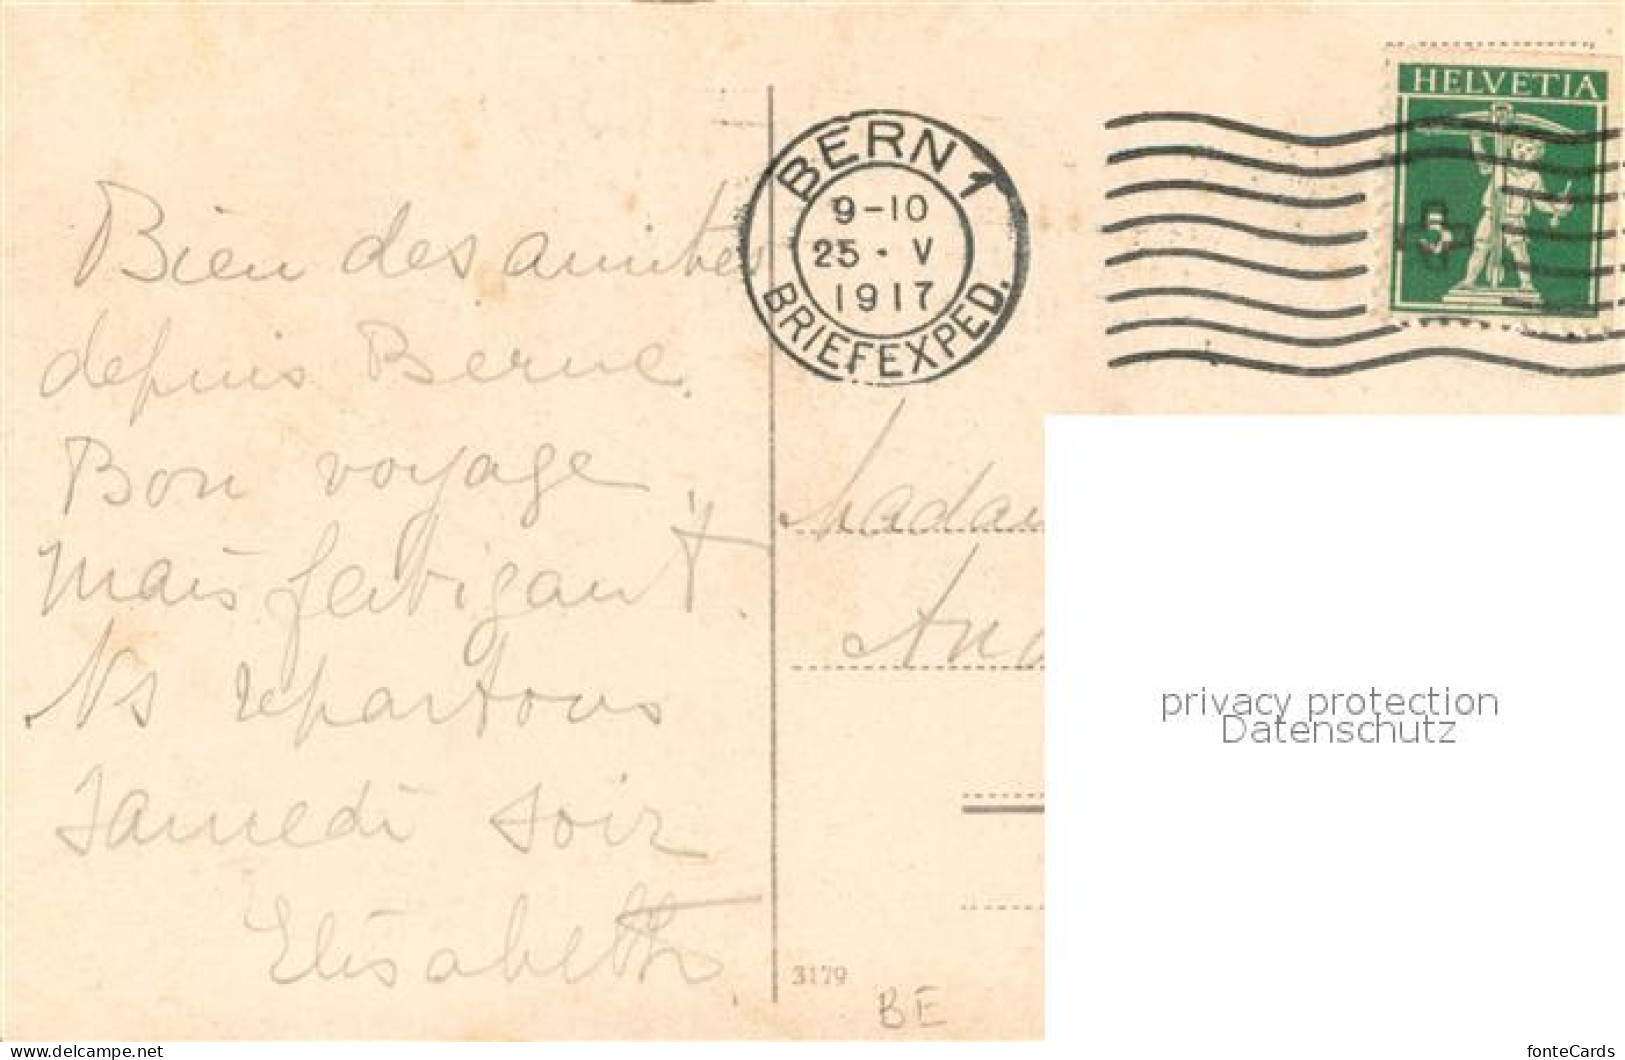 Bien des amitiés
depuis Berne.
Bon voyage,
mais fatigant.
Ns repartons
Samedi soir
Elisabeth.
BERN 1
9-10
25 · V
1917
BRIEFEXPED.
HELVETIA
5
Madam
And
privacy protection
Datenschutz
3179
BE
delcampe.net
fonteCards